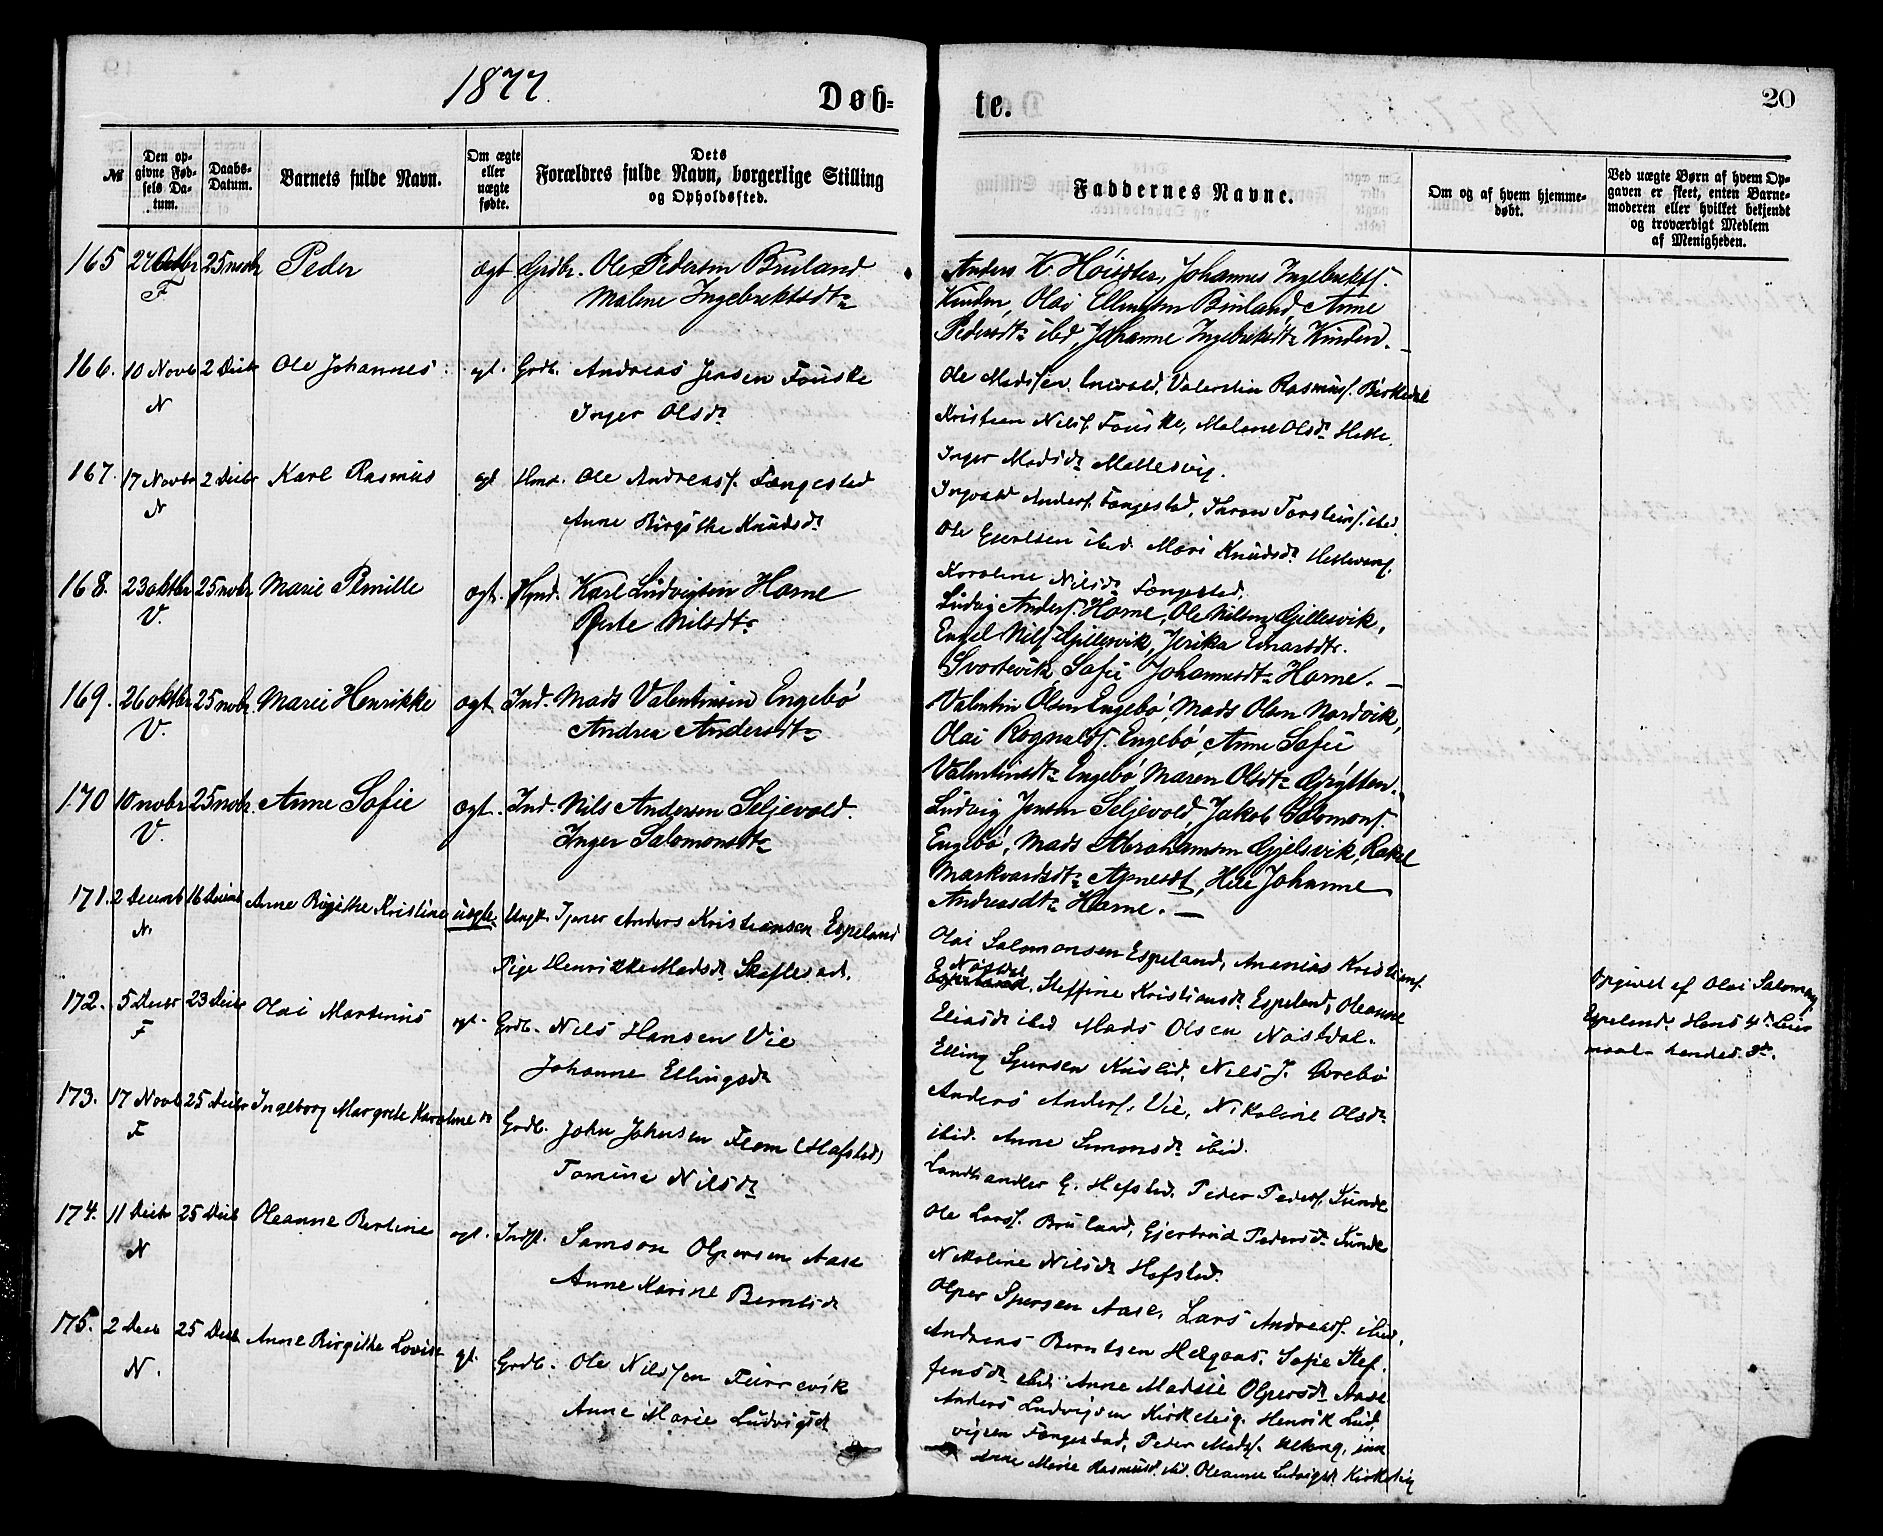 1877.
Døb=
te.
20
№
Den op-
givne Fød-
sels Da-
tum.
Daabs-
Datum.
Barnets fulde Navn.
Om ægte
eller
uægte
fødte.
Dets
Forældres fulde Navn, borgerlige Stilling
og Opholdssted.
Faddernes Navne.
Om og af hvem hjemme-
døbt.
Ved uægte Børn af hvem Op-
gaven er skeet, enten Barne-
moderen eller hvilket bekjendt
og troværdigt Medlem
af Menigheden.
165 25 novbr Peder ægt Grdbr. Ole Pedersen Bruland
F Malene Ingebrektsdtr
Anders K. Johannes Ingebrektss.
Kinden, Olai Ellingsen Bruland, Anne
Pedersdtr ibd, Johanne Ingebrektsdtr Kinden. —
166. 10 Novb 2 Decbr Ole Johannes ægt. Grdb. Andreas Jensen Fouske
N Inger Olsdr
Ole Madssen Valentin Rasmuss. Birkedal
Kristian Nilss. Fouske, Malene Olsdr
Inger Madsdr
167. 17 Novbr 2 Decbr Karl Rasmus ægt Ole Andreass. Fængestad
N Anne Birgithe Knudsdr
Ingvald Anderss. Fængestad, Thron Torsteins. ibd.
Ole ibd. Mari Knudsdr
Karoline Nilsdr Fængestad.
168. 23 oktbr 25 novbr. Marie Pernille ægt. Karl Ludvigsen Horne
V. Nilsdtr
Ludvig Anderss. Horne, Ole Nilsen Gjillesvik,
Engel Nilss Gjillesvik, Jerika
Svortevik, Sofie Johannesdtr Horne. —
169. 26 oktbr. 25 novbr. Marie Henrikke ægt. Ind. Mads Valentinsen Engebø
V. Andrea Andersdtr
Valentin Olsen Engebø, Mads Olsen Nordvik,
Olai Rognalds. Engebø, Anne Sofie
Valentinsdtr Engebø Maren Olsdtr Grytten.
170 10 novbr 25 novbr. Anne Sofie ægt. Ind. Nils Andersen Seljevold.
V. Inger Salomonsdtr
Ludvig Jensen Seljevold, Jakob Salomons.
Engebø, Mads Abrahamsen Gjelsvik, Rakel
Markvardsdtr Johanne
Andreasdtr Horne. —
171. 2 Decemb 16 Anne Birgithe Kristine uægte. Ungk. Anders Kristiansen Espeland
N. Pige Henrikke Madsdr
Olai Salomonsen Espeland, Ananias Kristians.
Espeland, Steffine Kristiansdr Espeland, Oleanne
Eliasdr ibid Mads Olsen Nastdal.
Opgivet af Olai Salomons
Espeland. Hans 4de Leier
maal – hendes 3de.
172. 5 Decbr 23 Decbr Olai Martinus ægt. Grdb. Nils Hansen Vie
F Johanne Ellingsdr
Elling Nils J.
Anders Anderss. Vie, Nikoline Olsdr
ibid. Anne Simonsdr ibid.
173. 17 Novb 25 Decbr Ingeborg Margrete Karoline Grdb. John Johnsen Flom (Hafstad)
F Tomine Nilsdr
Landhandler G. Hafstad. Peder Peders. Kunde
Ole Larss. Bruland, Gjertrud Pedersdr Kunde
Nikoline Nilsdr Hafstad.
174. 11 Decbr 25 Decb Oleanne Bertine ægt. Samson Olpersen Aase
N Anne Karine Berntsdr
Olper Sjursen Aase, Lars Andreass. ibid.
Andreas Berntsen Helgaas, Sofie Stef-
fensdr ibid Anne Madsie Olpersdr Aase
175. 2 Decb 25 Decb Anne Birgithe Lovise ægt. Grdb. Ole Nilssen
N. Anne Marie Ludvigsdr
Anders Ludvigsen Kirketeig. Henrik Lud-
vigsen Fængestad, Peder Madss.
Anne Marie Rasmusd. ibd. Oleanne Ludvigsd. Kirketeig